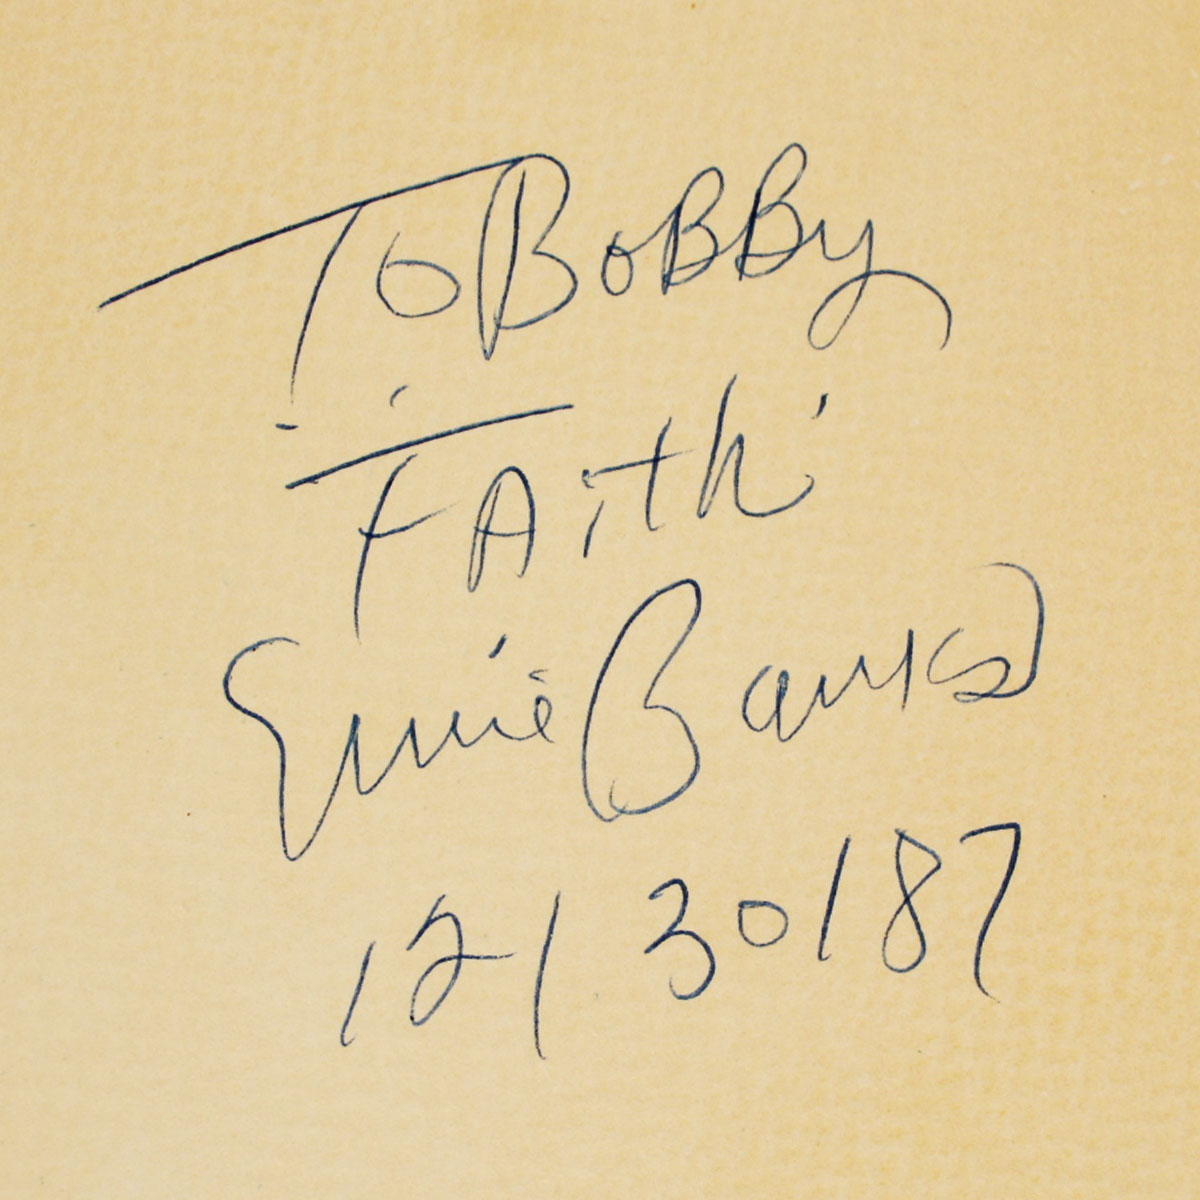 To BoBBy
"FAith"
Ernie Banks
12/30/87